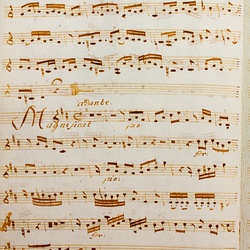 Andante.
Magnificat pia:
for:
pia:
for: